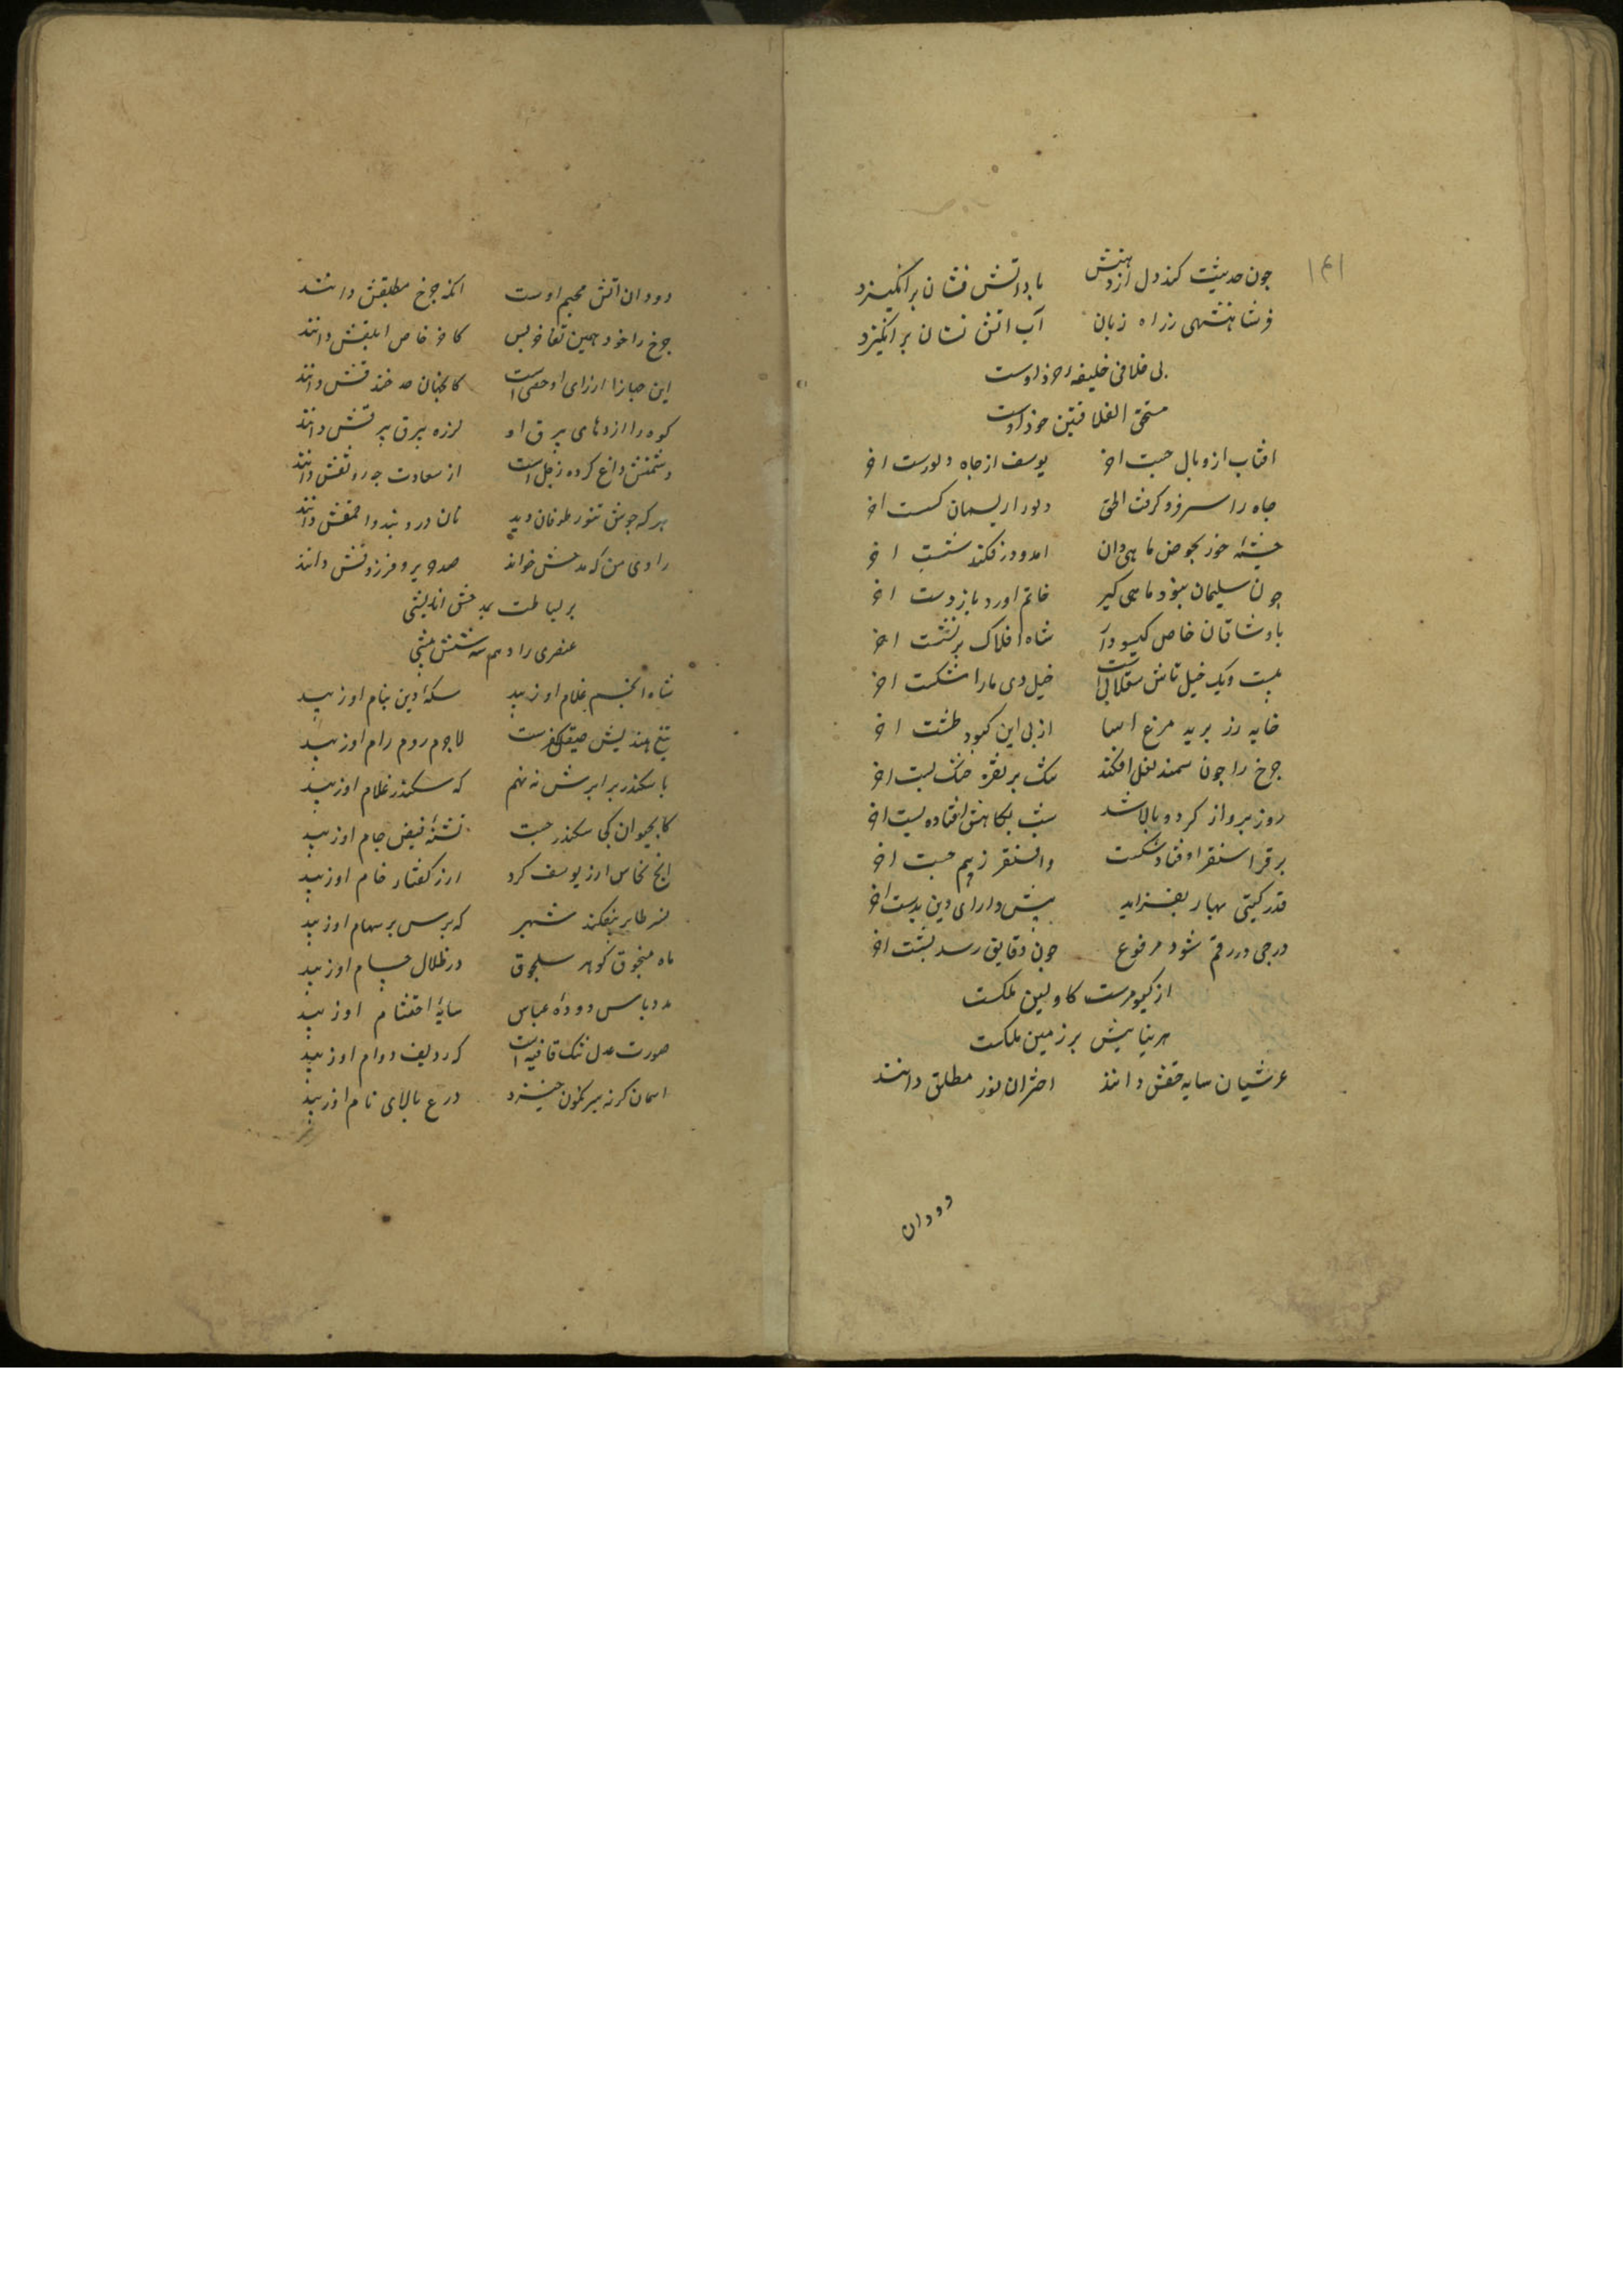 ۱۴۱
چون حدیثت کند دل از دهنش باد آتش فشان برانگیزد
فر شاهنشهی ز راه زبان آب آتش نشان برانگیزد
بی خلافی خلیفه خرد اوست
مستحق الخلافتین خود اوست
افتاب از وبال جست اخر یوسف از چاه و دلو رست اخر
چاه را سر فرو گرفت الحق دلو را ریسمان گسست اخر
چشمه خور بحوض ماهی دان امد و در فکند شست اخر
چون سلیمان نبود ماهی گیر خاتم اورد باز دست اخر
با وشاقان خاص گیسودار شاه افلاک بر نشست اخر
بیست و یک خیل تاش سقلابی است خیل دی ماه را شکست اخر
خایه زر برید مرغ اسا از پی این کبود طشت اخر
چرخ را چون سمند نعل افکند تنگ بر نقره خنگ بست اخر
روز پرواز کرد و بالا شد شب بکاهش فتاده پست اخر
بر قرا سنقر اوفتاد شکست واقسنقر ز بیم جست اخر
قدر گیتی بهار بفزاید پیش دارای دین پرست اخر
درجی در رقم شود مرفوع چون دقایق رسد بشست اخر
از کیومرث کاولین ملکست
هر نیاییش بر زمین ملکست
عرشیان سایه حقش دانند اختران نور مطلق دانند
دودان
دودان اتش محیم اوست انکه چرخ مطبقش دانند
چرخ را خود همین تفاخر بس کاخر خاص ابلقش دانند
این جهان را از رای او حصنی است کانچنان صد خندقش دانند
کوه را اژدهای بیرق او لرزه بیرق بیرقش دانند
دشمنش داغ کرده زحل است از سعادت چه رونقش دانند
هر که جوش تنور طوفان دید نان درو بندد احمقش دانند
راوی من که مدحش خواند صد جریر و فرزدقش دانند
بر بساطت بمدحش اندیشی
عنصری را دهم سه شش پیشی
شاه انجم غلام او زیبد سکه دین بنام او زیبد
تیغ هندیش صیقل کفرست لاجرم روم رام او زیبد
با سکندر برابرش نه نهم که سکندر غلام او زیبد
کاب حیوان کی سکندر جست تشنه فیض جام او زیبد
انچ نخاس ارز یوسف کرد ارز گفتار خام او زیبد
نسر طایر بیفکند شهپر که پرس بر سهام او زیبد
ماه منجوق گوهر سلجوق در ظلال حسام او زیبد
مدد باس دوده عباس سایه احتشام او زیبد
صورت عدل تنگ قافیه است که ردیف دوام او زیبد
اسمان گر نه سرنگون خیزد درع بالای تام او زیبد